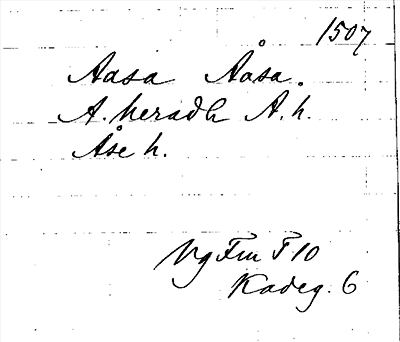 1507
Aasa Åása.
A. heradh A. h.
Åse h.
Vg Fm F. 10
Kadeg. 6